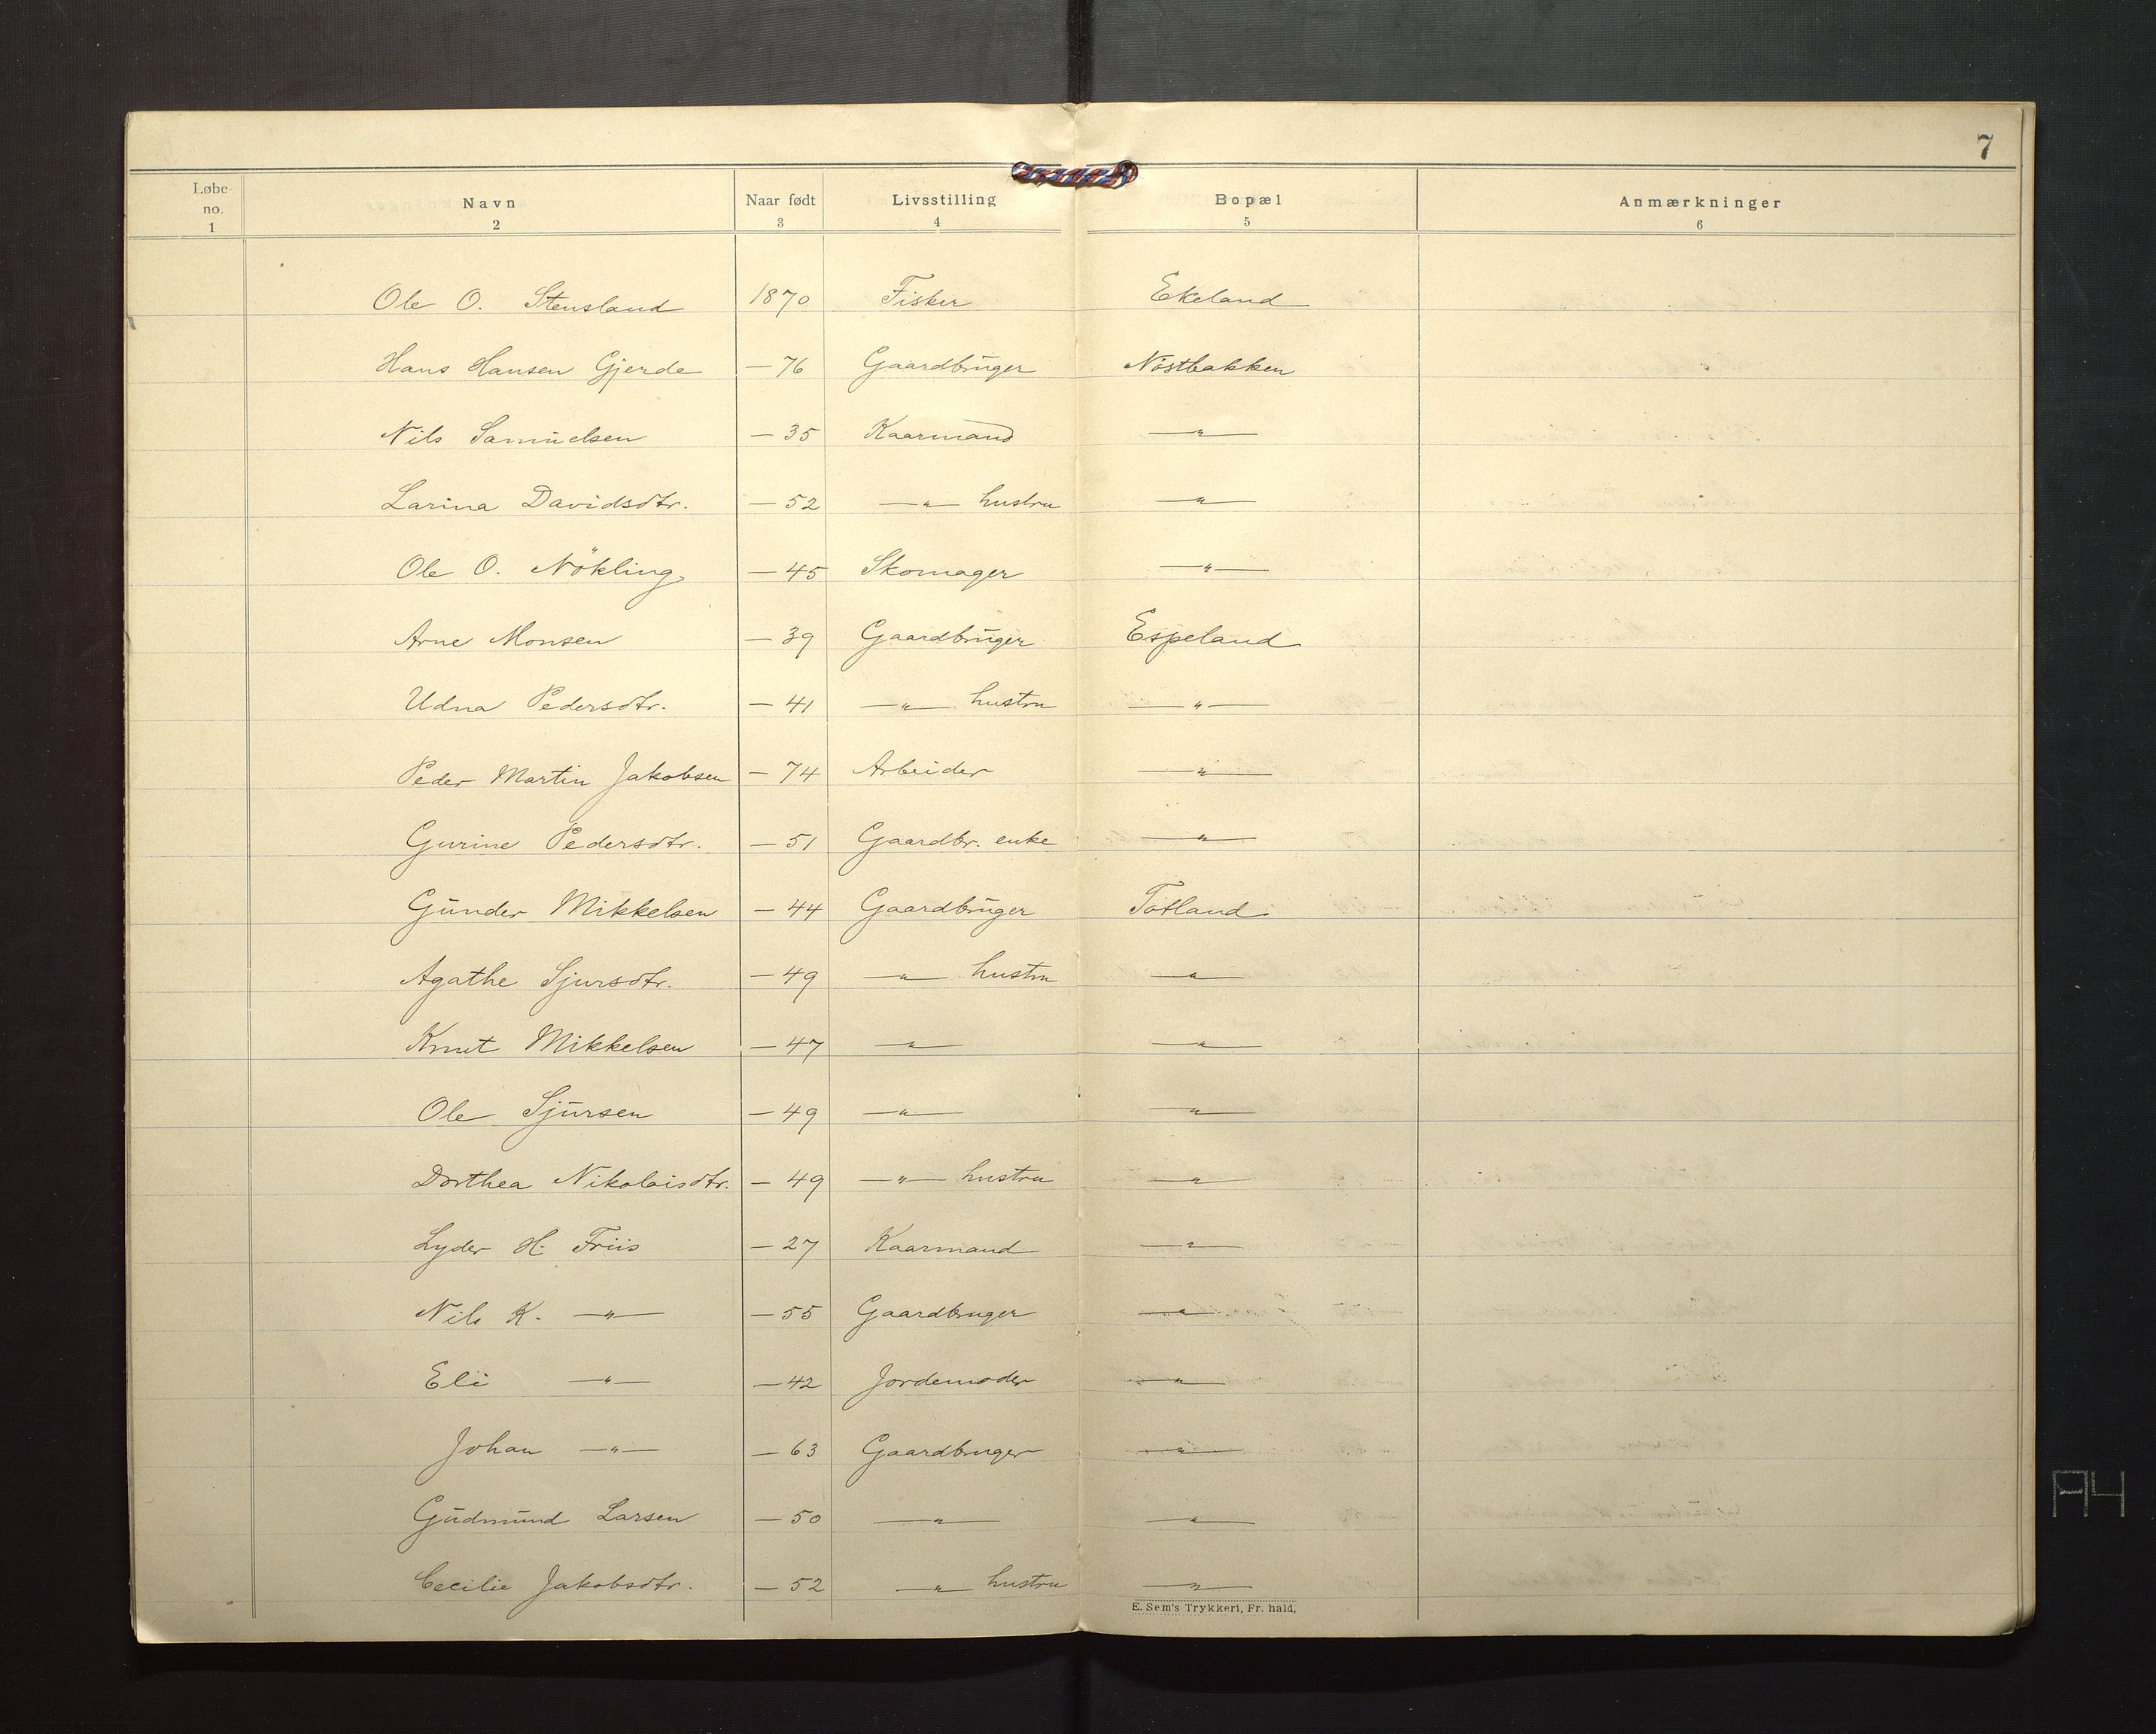 7
Løbe-no. Navn Naar født Livsstilling Bopæl Anmærkninger
1 2 3 4 5 6
Ole O. Stensland 1870 Fisker Ekeland
Hans Hansen Gjerde — 76 Gaardbruger Nöstbakken
Nils Samuelsen — 35 Kaarmand —"—
Larina Davidsdtr. — 52 —"— hustru —"—
Ole O. Nökling — 45 Skomager —"—
Arne Monsen — 39 Gaardbruger Espeland
Udna Pedersdtr. — 41 —"— hustru —"—
Peder Martin Jakobsen — 74 Arbeider —"—
Gurine Pedersdtr. — 51 Gaardbr. enke —"—
Gunder Mikkelsen — 44 Gaardbruger Totland
Agathe Sjursdtr. — 49 —"— hustru —"—
Knut Mikkelsen — 47 —"— —"—
Ole Sjursen — 49 —"— —"—
Dorthea Nikolaisdtr. — 49 —"— hustru —"—
Lyder H. Friis — 27 Kaarmand —"—
Nils K. —"— — 55 Gaardbruger —"—
Eli —"— — 42 Jordemoder —"—
Johan —"— — 63 Gaardbruger —"—
Gudmund Larsen — 50 —"— —"—
Cecilie Jakobsdtr. — 52 —"— hustru —"—
E. Sem's Trykkeri, Fr. hald.
A4